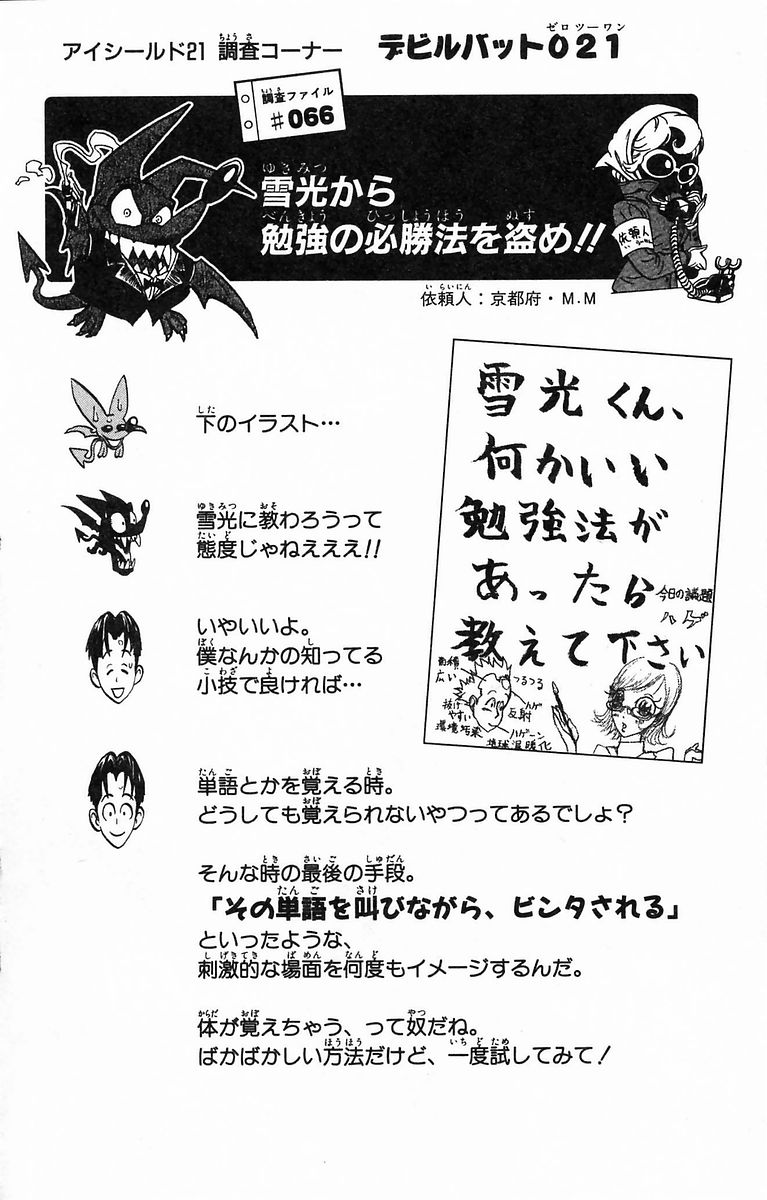 アイシールド21 調査コーナー デビルバット021
調査ファイル
#066
雪光から
勉強の必勝法を盗め!!
依頼人
依頼人：京都府・M.M
下のイラスト…
雪光に教わろうって
態度じゃねえええ!!
いやいいよ。
僕なんかの知ってる
小技で良ければ…
雪光くん、
何かいい
勉強法が
あったら
教えて下さい
今日の議題
ハゲ
面積
広い
つるつる
抜け
やすい
ハゲ
反射
環境汚染
ハゲーン
地球温暖化
単語とかを覚える時。
どうしても覚えられないやつってあるでしょ？
そんな時の最後の手段。
「その単語を叫びながら、ビンタされる」
といったような、
刺激的な場面を何度もイメージするんだ。
体が覚えちゃう、って奴だね。
ばかばかしい方法だけど、一度試してみて！